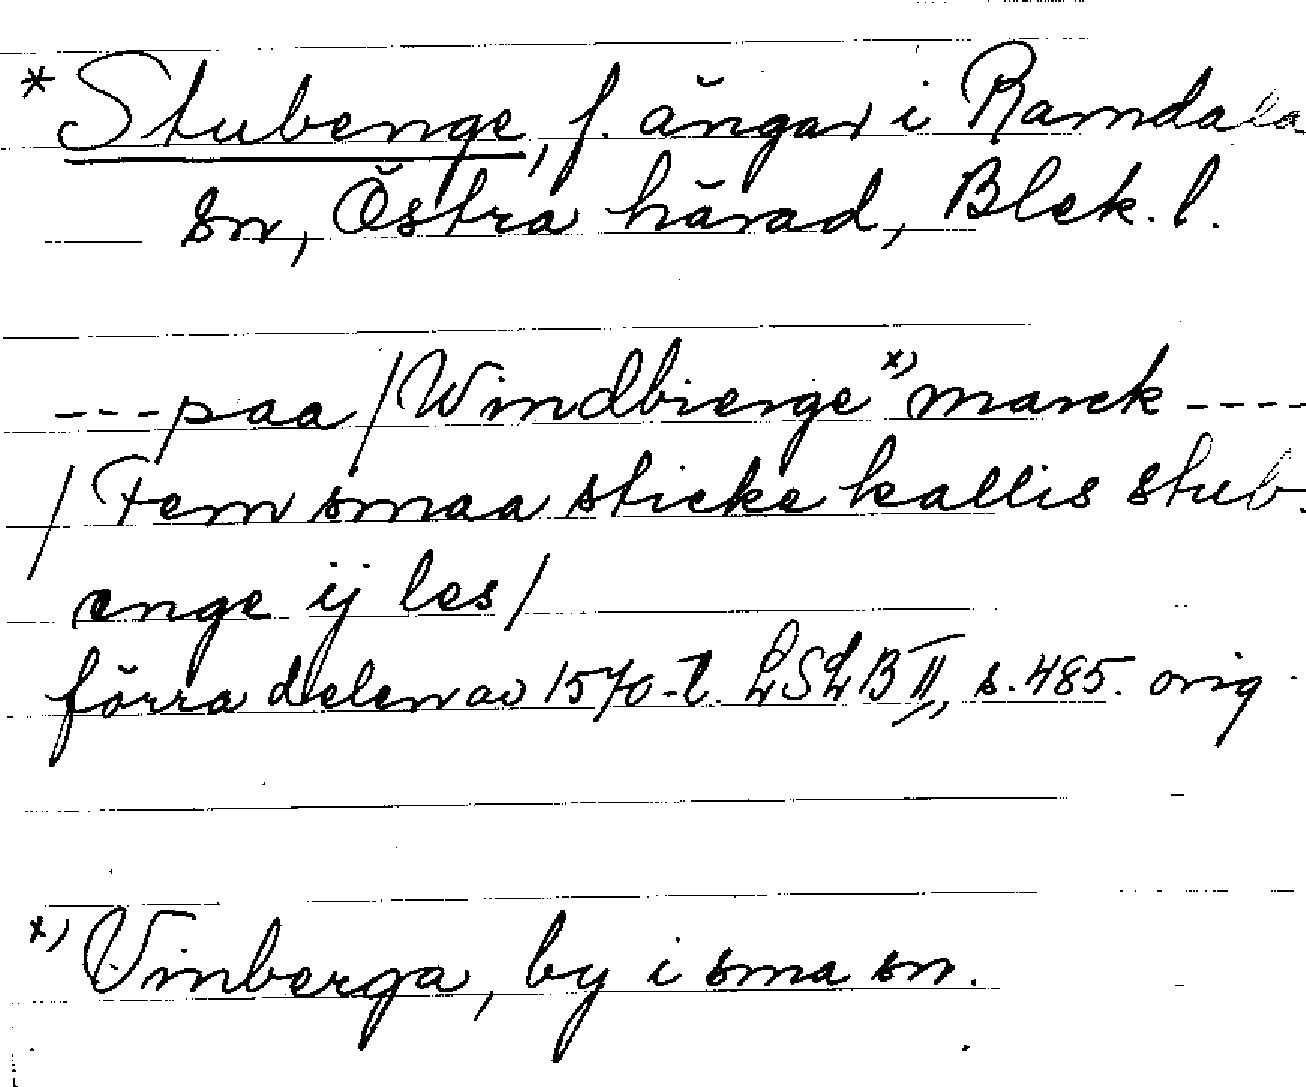 * Stubenge, f. ängar i Ramdala
sn, Östra härad, Blek. l.
---paa / Windbierge x) marck ----
/ Fem smaa sticke kallis stub-
enge ij les /
förra delen av 1570-t. LSLB II, s. 485. orig.
x) Vinberga, by i sma sn.